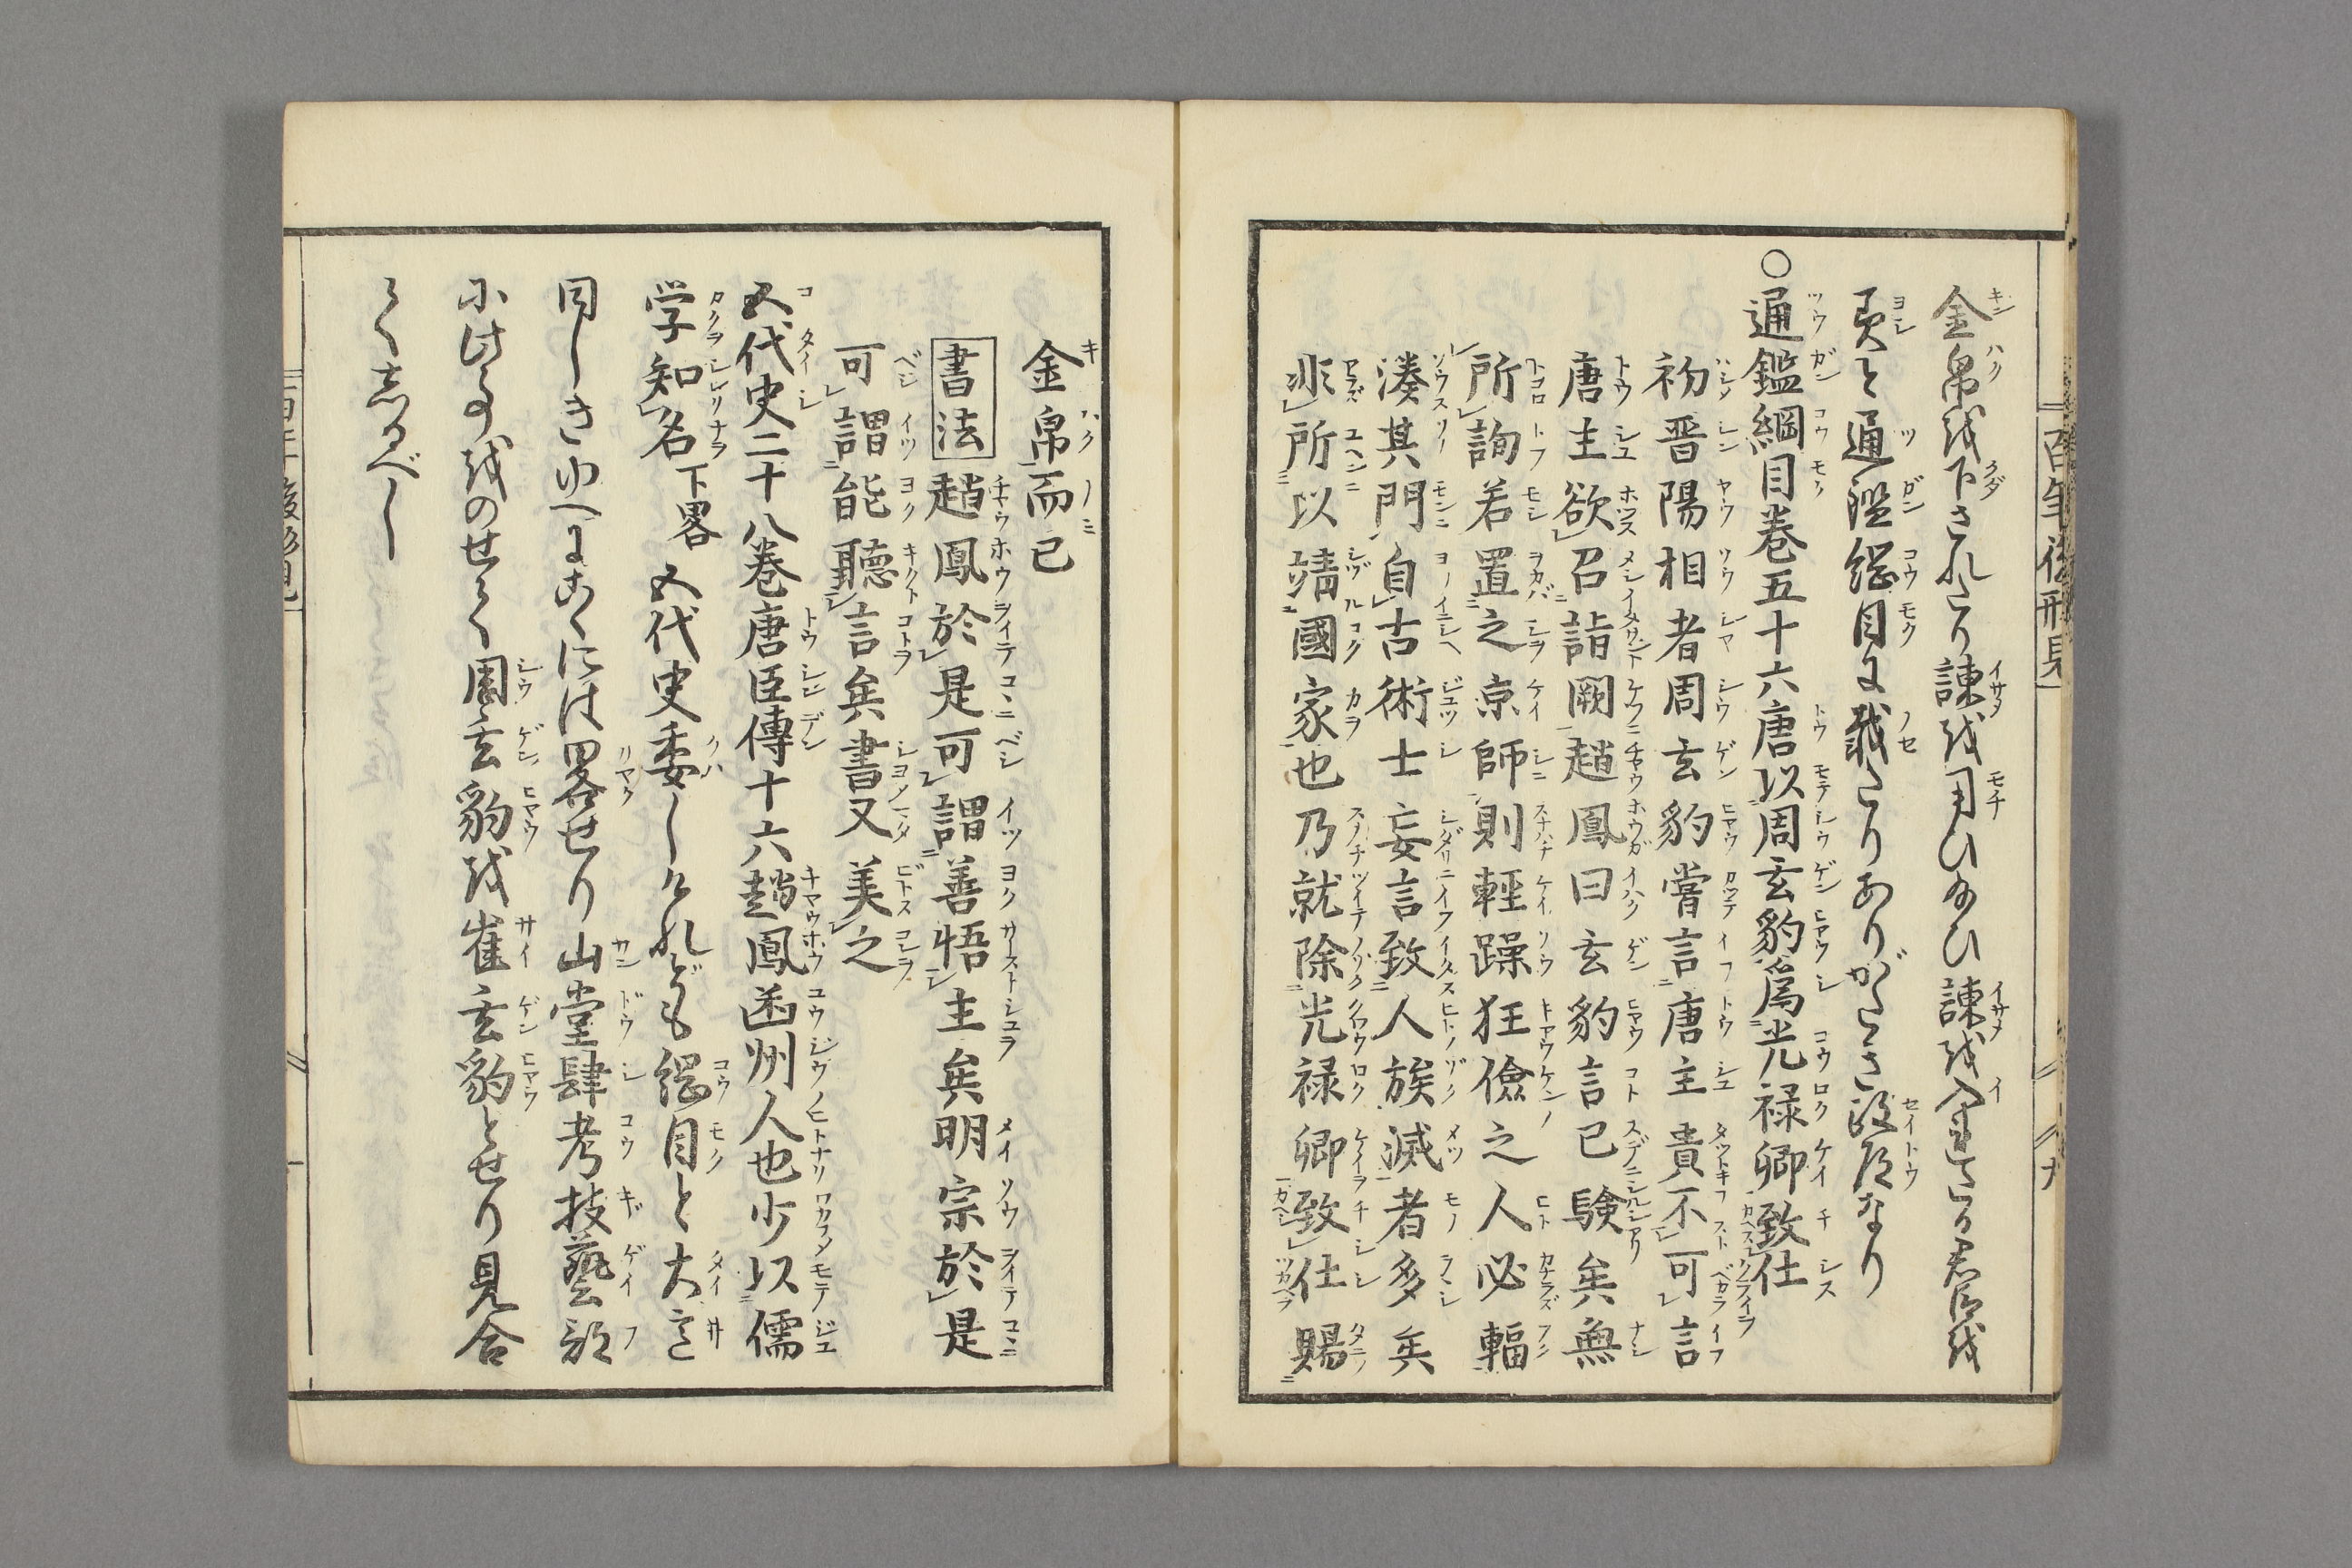 金帛を下されたり諫を用ひ給ひ諫を入奉さる君臣を
美て通鑑綱目に載たりありがたき政道なり
○通鑑綱目巻五十六唐以周玄豹爲光禄卿致仕
初晋陽相者周玄豹嘗言唐主貴不可言
唐主欲召詣闕趙鳳曰玄豹言已験矣無
所詢若置之京師則輕躁狂儉之人必輻
湊其門自古術士妄言致人族滅者多矣
非所以靖國家也乃就除光禄卿致仕賜
金帛而已
書法 趙鳳於是可謂善悟主矣明宗於是
可謂能聽言矣書又美之
五代史二十八巻唐臣傳十六趙鳳幽州人也少以儒
学知名下畧 五代史委しけれども綱目と大意
同しきゆへにこゝには畧せり山堂肆考技藝部
に此事をのせて周玄豹を崔玄豹とせり見合
てしるべし